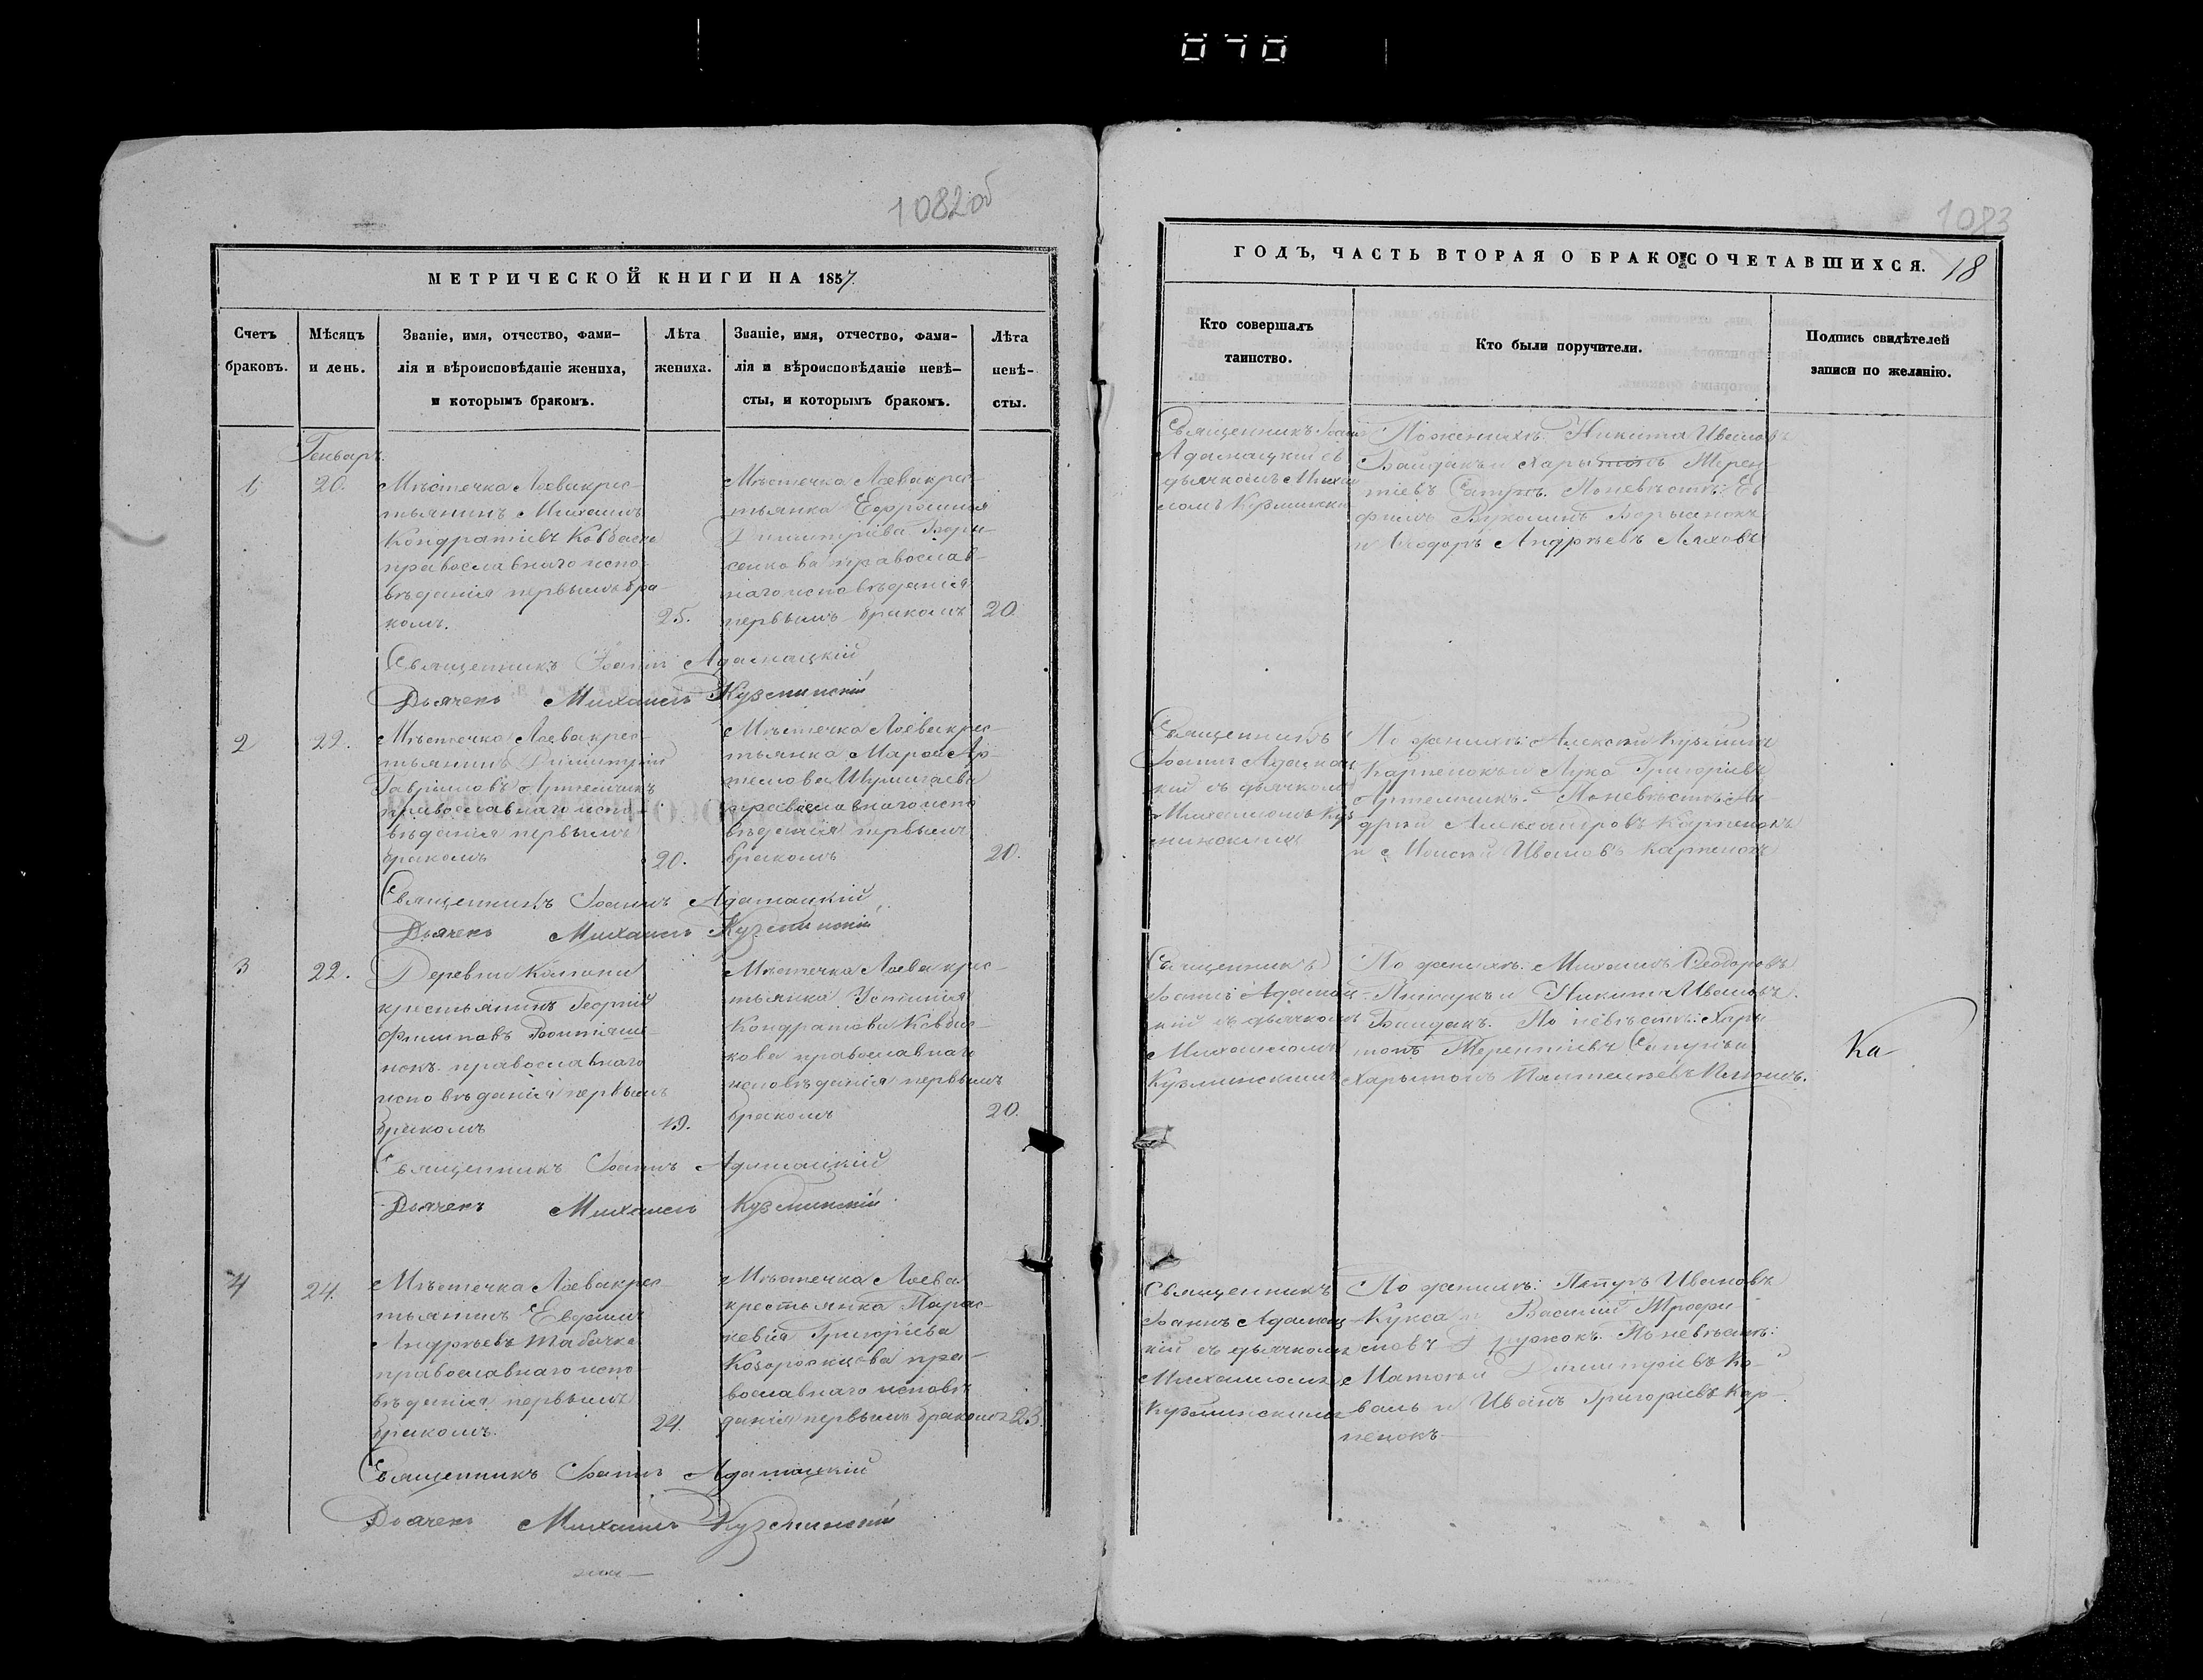 070
1082об
МЕТРИЧЕСКОЙ КНИГИ НА 1857.
Счетъ браковъ.
Мѣсяцъ и день.
Званіе, имя, отчество, фами-
лія и вѣроисповѣданіе жениха,
и которымъ бракомъ.
Лѣта жениха.
Званіе, имя, отчество, фами-
лія и вѣроисповѣданіе невѣ-
сты, и которымъ бракомъ.
Лѣта невѣ-
сты.
Генваръ
1
20.
Мѣстечка Лоева крес-
тьянинъ Михаилъ
Кондратіевъ Ковбаска
православнаго испо-
вѣданія первымъ бра-
комъ.
25.
Мѣстечка Лоева крес-
тьянка Ефросинія
Димитріева Бори-
сенкова православ-
наго исповѣданія
первымъ бракомъ
20
Священникъ Іоаннъ Адамацкій
Дьячекъ Михаилъ Кузминскій
2
22.
Мѣстечка Лоева крес-
тьянинъ Димитрій
Гавриловъ Артемчикъ
православнаго испо-
вѣданія первымъ
бракомъ
20.
Мѣстечка Лоева крес-
тьянка Марѳа Ар-
темова
православнаго испо
вѣданія первымъ
бракомъ
20.
Священникъ Іоаннъ Адамацкій
Дьячекъ Михаилъ Кузминскій
3
22.
Деревни
крестьянинъ Георгій
Филиповъ
нокъ православнаго
исповѣданія первымъ
бракомъ
19.
Мѣстечка Лоева крес-
тьянка Устинія
Кондратова Ковбас-
кова православнаго
исповѣданія первымъ
бракомъ
20.
Священникъ Іоаннъ Адамацкій
Дьячекъ Михаилъ Кузминскій
4
24.
Мѣстечка Лоева крес-
тьянинъ Евдоким
Андреевъ Табачка
православнаго испо-
вѣданія первымъ
бракомъ.
24.
Мѣстечка Лоева
крестьянка Парас-
кевія Григоріева
пра-
вославнаго исповѣ
данія первымъ бракомъ
23.
Священникъ Іоаннъ Адамацкій
Дьячекъ Михаилъ Кузминскій
1083
ГОДЪ, ЧАСТЬ ВТОРАЯ О БРАКОСОЧЕТАВШИХСЯ.
18
Кто совершалъ
таинство.
Кто были поручители.
Подпись свидѣтелей
записи по желанію.
Священникъ Іоаннъ
Адамацкій съ
дьячкомъ Михаи
ломъ Кузминским
По женихѣ: Никита Ивановъ
Байдакъ и Харытонъ Терен
тіевъ По невѣстѣ: Ев
фимъ Борысенокъ
и Ѳеодоръ Андреевъ Ляховъ
Священникъ
Іоаннъ Адамац
кій съ дьячкомъ
Михаиломъ Куз
минскимъ
По женихѣ: Алексѣй
Карпенокъ и Лука Григоріевъ
Артемчикъ. По невѣстѣ: Ан
дрей Александровъ Карпенокъ
и Ивановъ Карпенокъ
Священникъ
Іоаннъ Адамац-
кій съ дьячкомъ
Михаиломъ
Кузминскимъ
По женихѣ: Михаилъ Ѳеодоровъ
и Никита Ивановъ
Байдакъ. По невѣстѣ: Хары
тонъ Терентіевъ и
Харытонъ
Ка
Священникъ
Іоаннъ Адамац
кій съ дьячкомъ
Михаиломъ
Кузминскимъ
По женихѣ: Петръ Ивановъ
Кукса и Василій Трофи
мовъ Дружокъ. По невѣстѣ:
Матѳей Димитріевъ Ко-
валь и Иванъ Григоріевъ Кар-
пенокъ